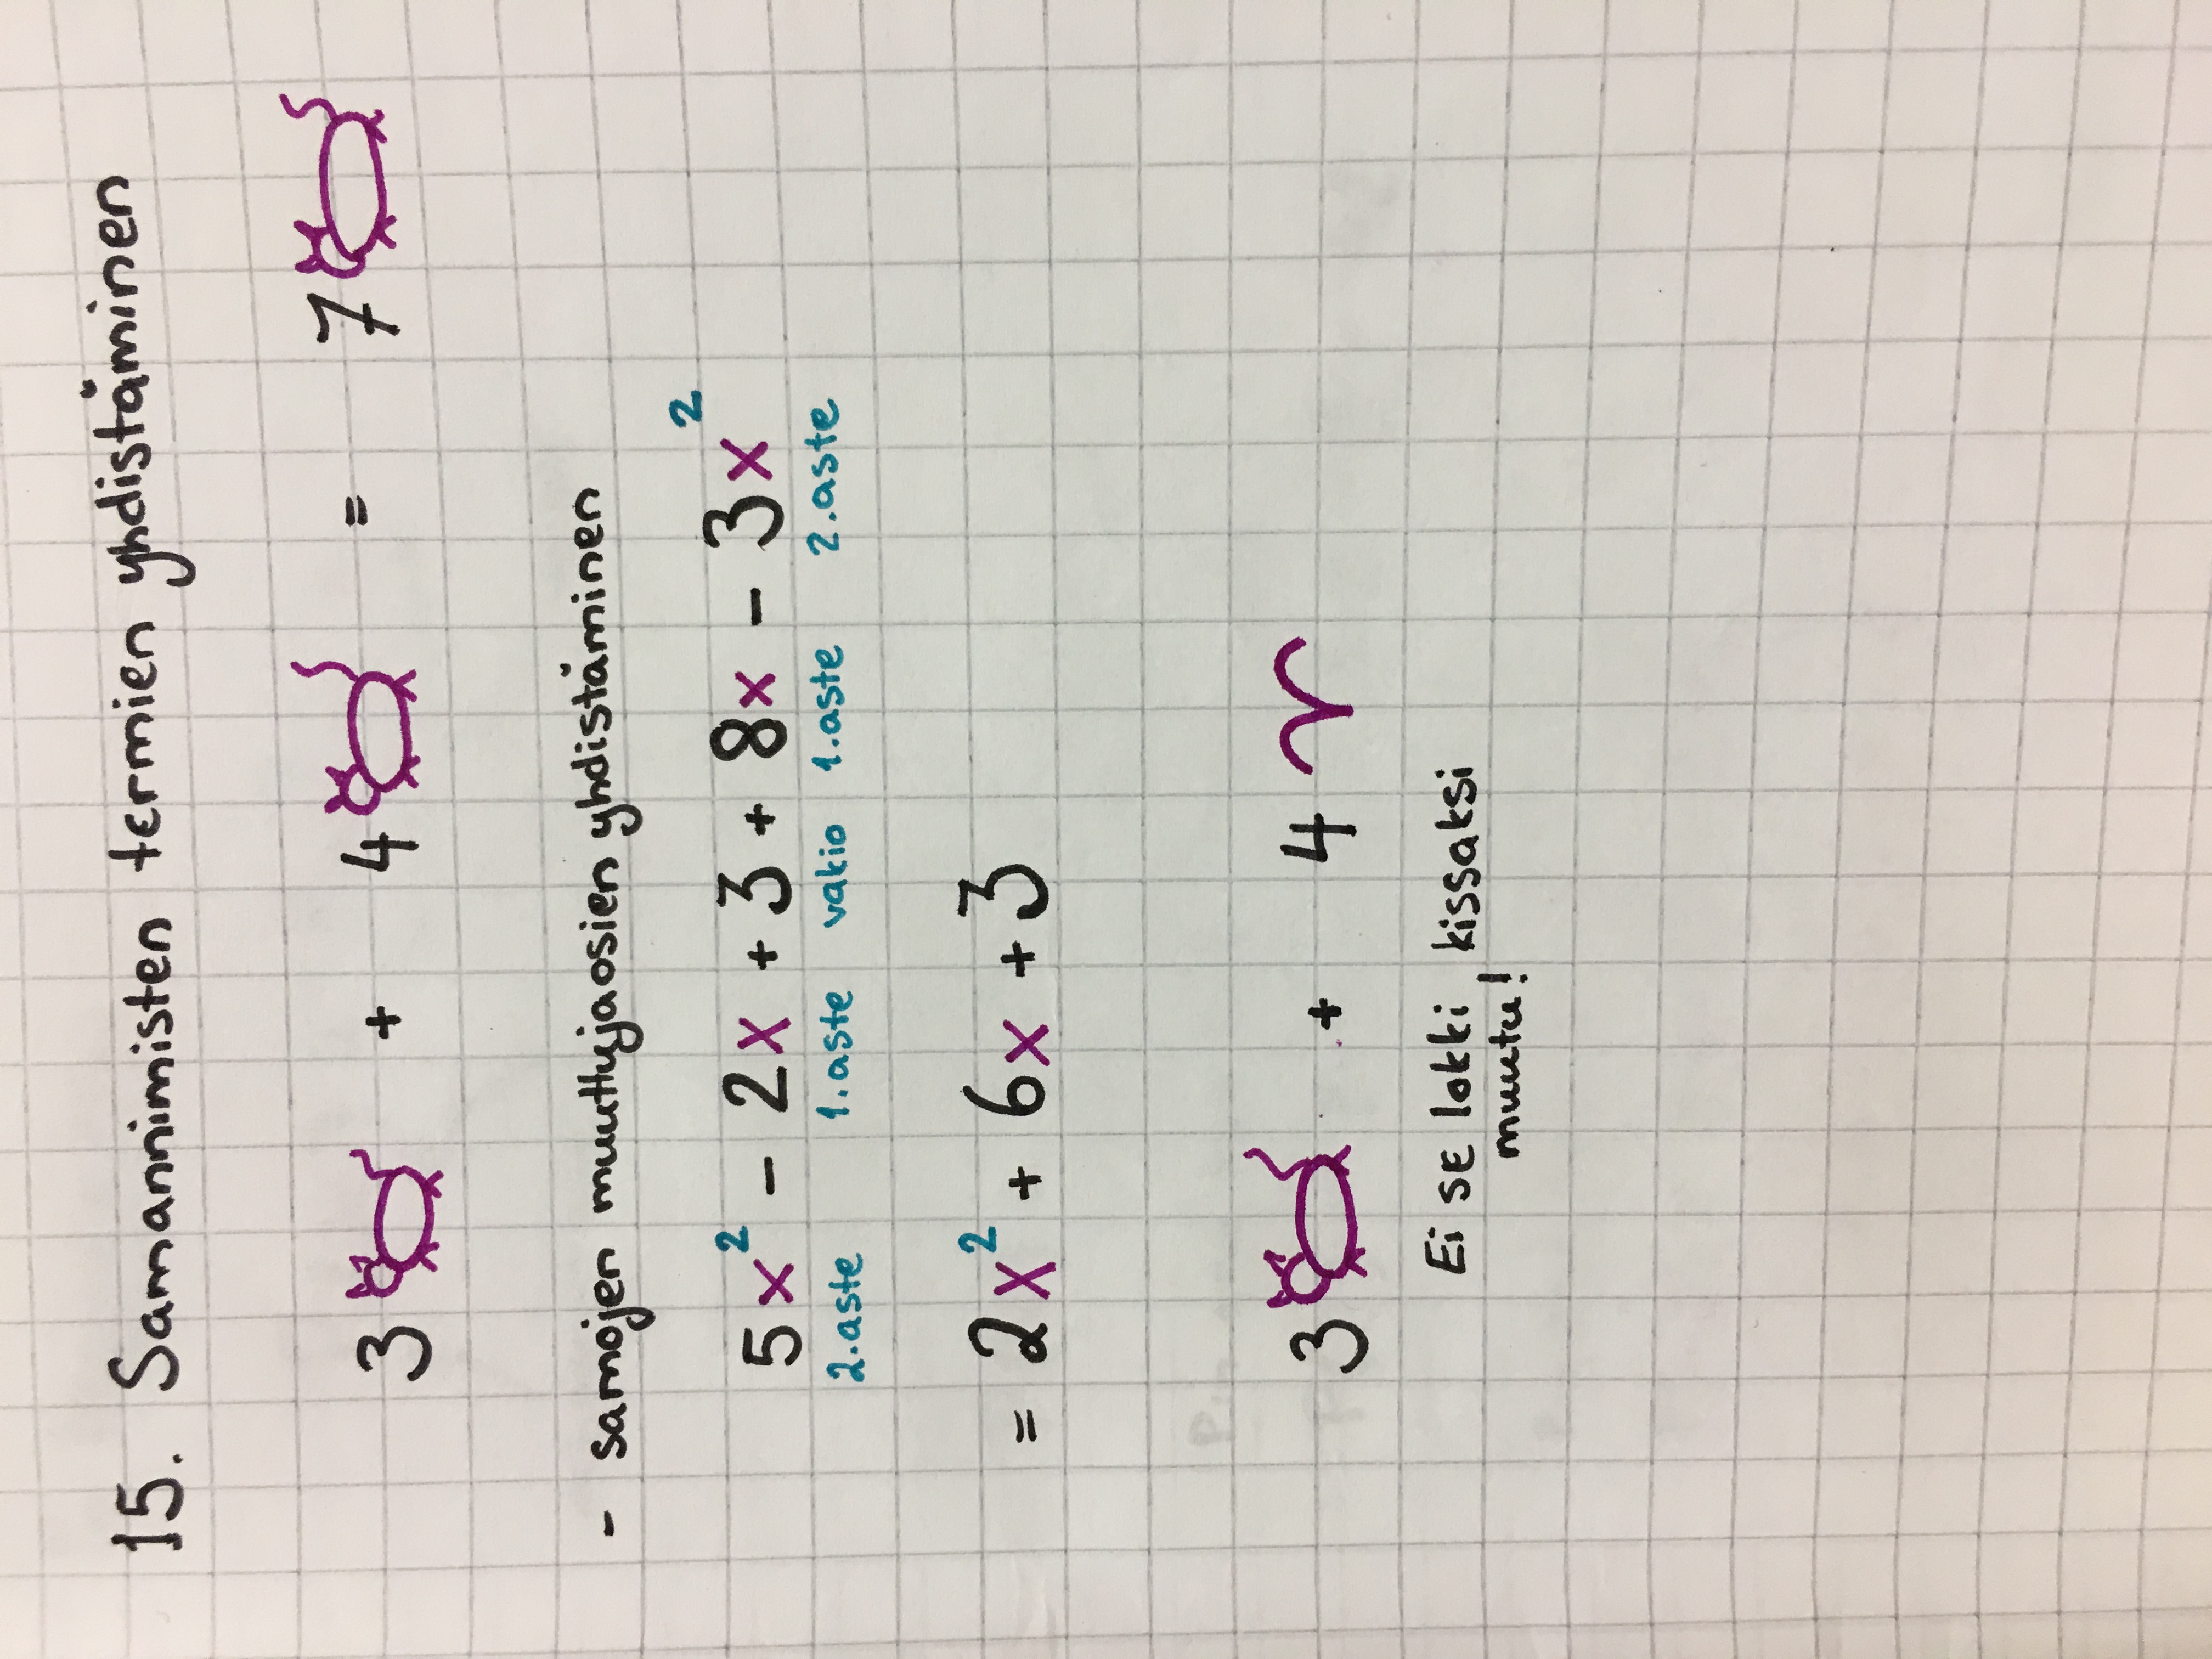 15. Samannimisten termien yhdistäminen
3 + 4 = 7
- samojen muuttujaosien yhdistäminen
5x² - 2x + 3 + 8x - 3x²
2.aste 1.aste vakio 1.aste 2.aste
= 2x² + 6x + 3
3 + 4
Ei se lokki kissaksi
muutu!